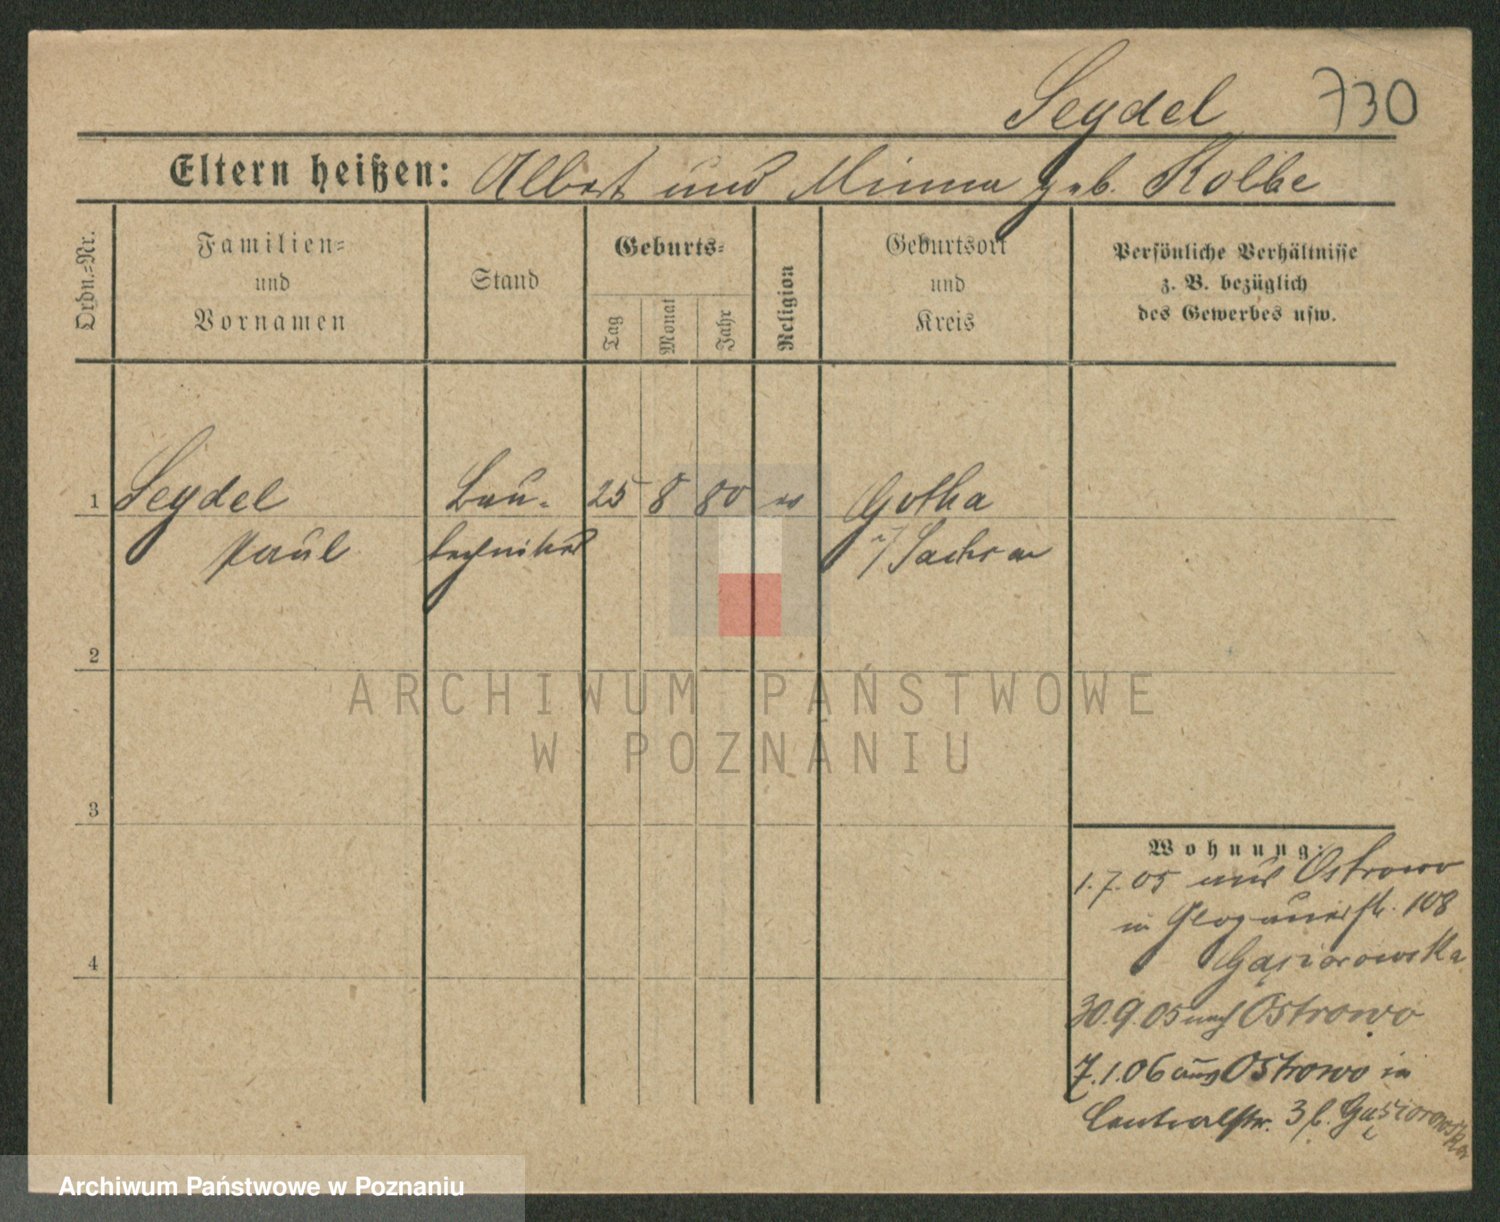 Seydel 730
Eltern heißen: Albert und Minna geb. Kolbe
Ordn.=Nr.
Familien=
und
Vornamen
Stand
Geburts=
Tag
Monat
Jahr
Religion
Geburtsort
und
Kreis
Persönliche Verhältnisse
z. B. bezüglich
des Gewerbes usw.
1 Seydel Bau- 25 8 80 ev Gotha
Paul techniker Sachsen
2
3
4
Wohnung:
1.7.05 aus Ostrowo
in Glogauerstr. 108
Gąsiorowska
30.9.05 nach Ostrowo
7.1.06 aus Ostrowo in
Centralstr. 3 b. Gąsiorowska
ARCHIWUM PAŃSTWOWE
W POZNANIU
Archiwum Państwowe w Poznaniu